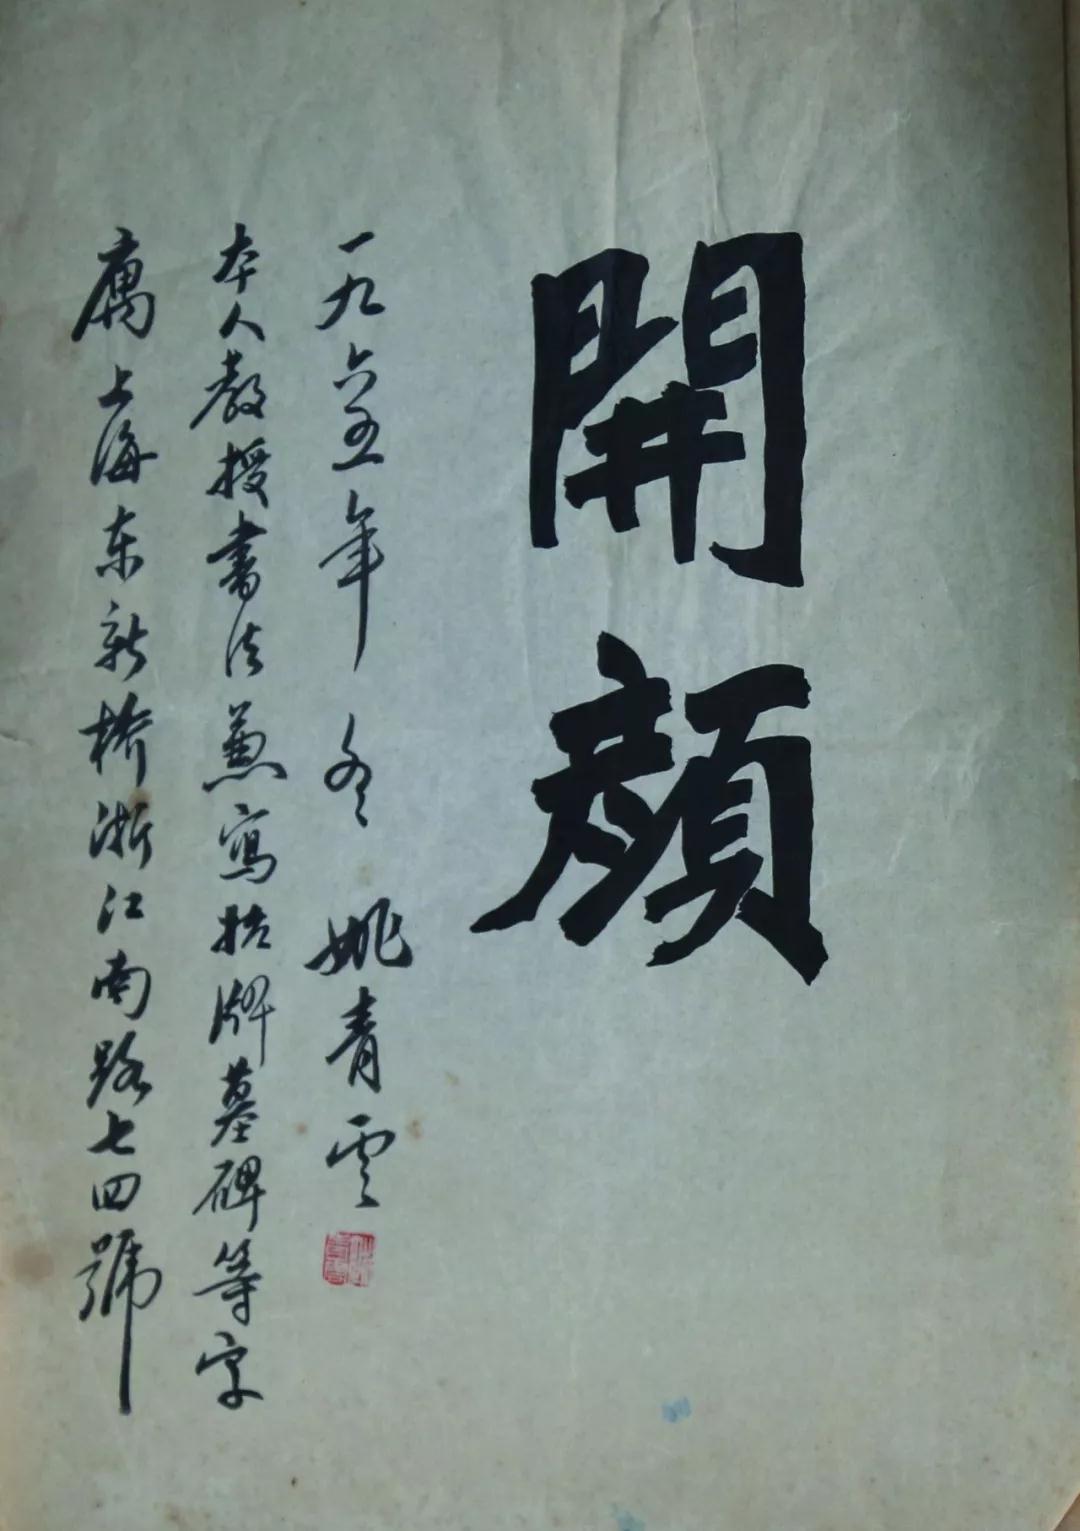 開顏
一九六五年 冬 姚青雲
本人教授書法兼寫招牌墓碑等字
庽上海东新桥浙江南路七四號